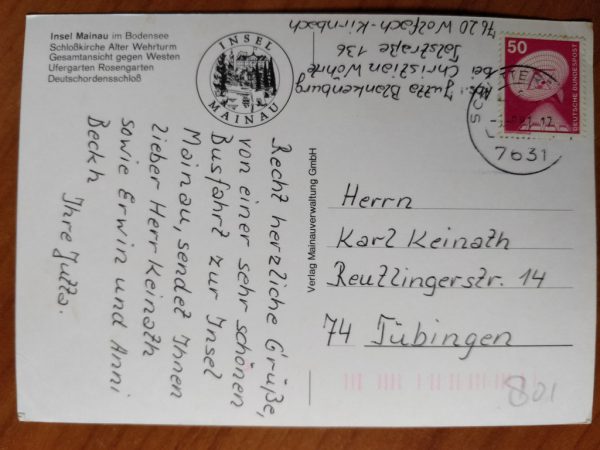 Insel Mainau im Bodensee
Schloßkirche Alter Wehrturm
Gesamtansicht gegen Westen
Ufergarten Rosengarten
Deutschordensschloß
INSEL
MAINAU
Jutta Blankenburg
bei
Christian Wöhrle
Talstraße 136
7620 Wolfach-Kirnbach
50
DEUTSCHE BUNDESPOST
7631
Recht herzliche Grüße,
von einer sehr schönen
Busfahrt zur Insel
Mainau, sendet Ihnen
lieber Herr Keinath
sowie Erwin und Anni
Beckh Ihre Jutta.
Verlag Mainauverwaltung GmbH
Herrn
Karl Keinath
Reutlingerstr. 14
74 Tübingen
801